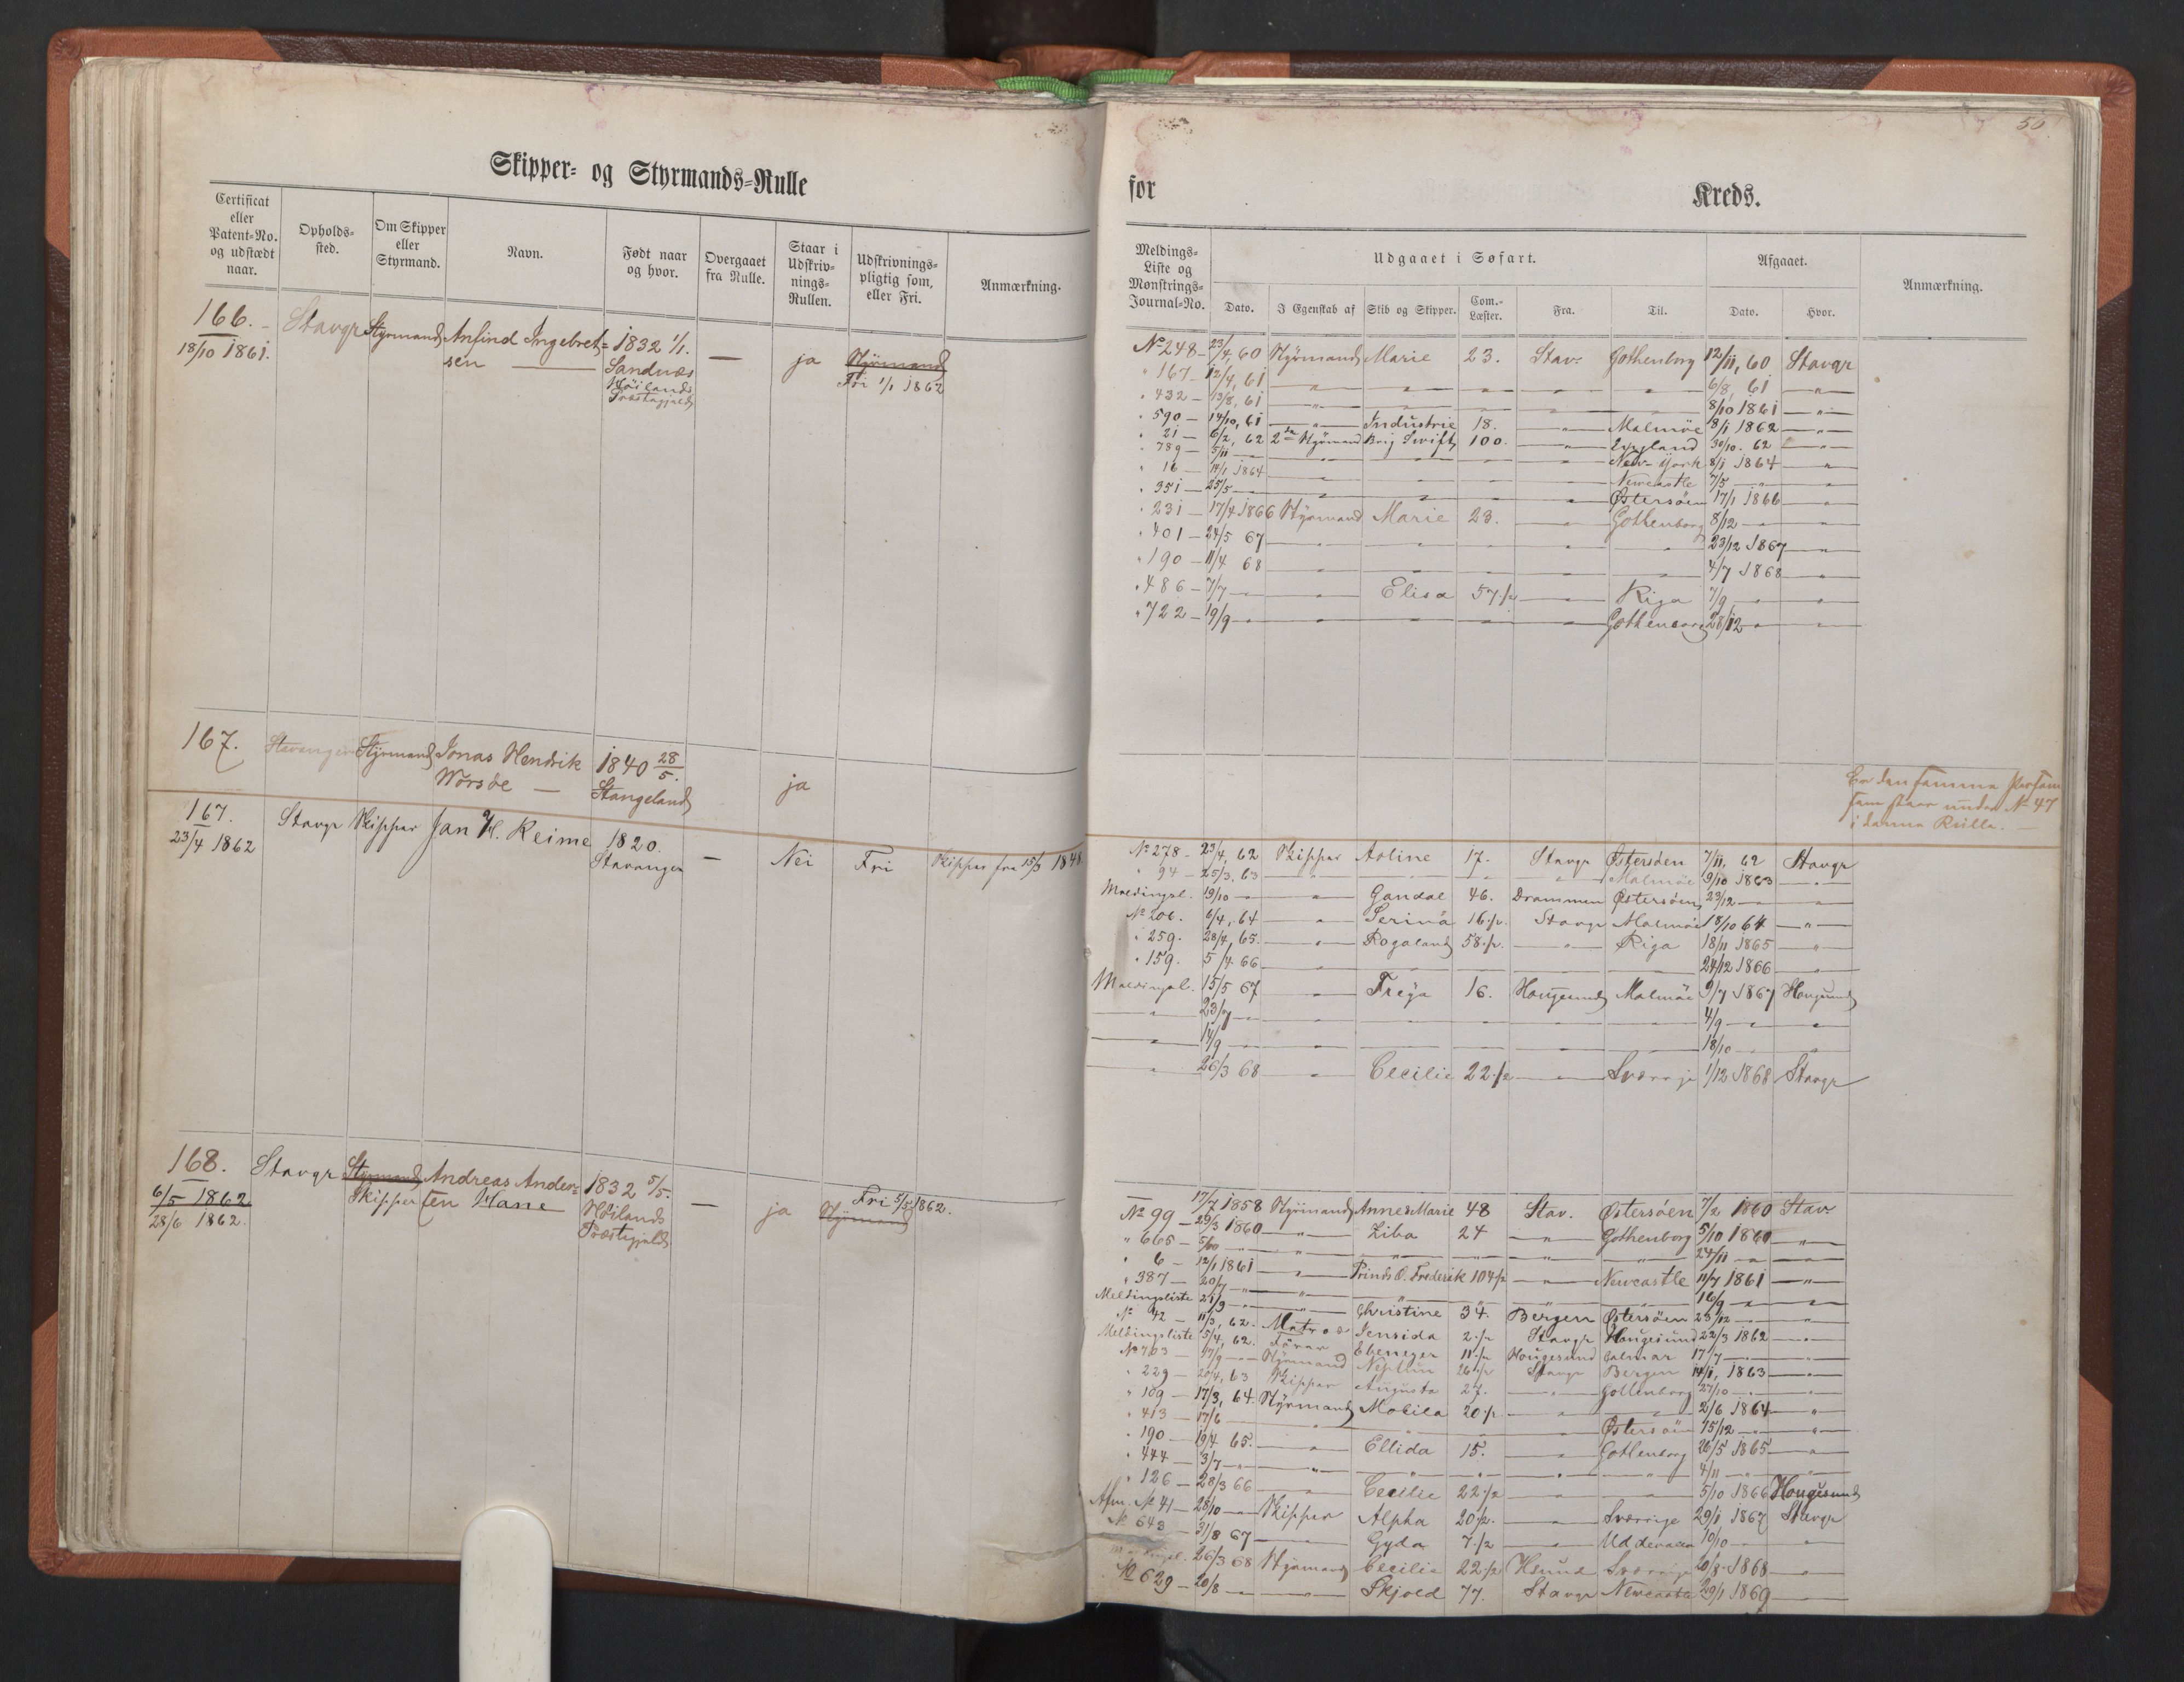 50
Skipper- og Styrmands-Rulle
Certificat eller Patent-No. og udstædt naar.
Opholds-sted.
Om Skipper eller Styrmand.
Navn.
Født naar og hvor.
Overgaaet fra Rulle.
Staar i Udskriv-nings-Rullen.
Udskrivnings-pligtig som, eller Fri.
Anmærkning.
166. Stavgr Styrmand Anfind Ingebret= 1832 1/1. — ja Styrmand
18/10 1861. sen — Sandnæs Fri 1/1 1862
Høilands
Præstegjeld
167. Stavanger Styrmand Jonas Hendrik 1840 28/5.
Worsøe — Stangeland ja
167. Stavgr Skipper Jan H. Reime 1820. — Nei Fri Skipper fra 15/3 1848
23/4 1862 Stavanger
168. Stavgr Styrmand Andreas Ander= 1832 5/5. — ja Fri 5/5 1862.
6/5 1862 Skipper sen Hane Høilands Styrmand
28/6 1862. Præstegjeld
for Kreds.
Meldings-Liste og Mønstrings-Journal-No.
Udgaaet i Søfart.
Dato.
I Egenskab af
Skib og Skipper.
Com.-Læster.
Fra.
Til.
Afgaaet.
Dato.
Hvor.
Anmærkning.
No 248 — 23/4, 60 Styrmand Marie 23. Stav: Gothenborg 12/11, 60 Stavgr
" 167 — 12/4, 61 — " — — — — — 6/8, 61 — " —
" 432 — 13/8, 61 — " — — — — — 8/10 1861 — " —
" 590 — 14/10, 61 — " — Industrie 18. — " — Malmöe 8/1 1862 — " —
" 21 — 6/2, 62 2den Styrmand Brig Swift 100. — " — England 30/10. 62 — " —
" 789 — 5/11 — " — — — — New-York 8/1 1864 — " —
" 16 — 14/1 1864 — — — — Newcastle 7/5 — " —
" 351 — 25/5 — — — — — Østersöen 17/1 1866 — " —
" 231 — 17/4 1866 Styrmand Marie 23. — " — Gothenborg 8/12 — " —
" 401 — 24/5 67 — " — — — — — 23/12 1867 — " —
" 190 — 11/4 68 — " — — — — — 4/7 1868 — " —
" 486 — 7/7 — " — Elisa 57 ./2 — " — Riga 7/9 — " —
" 722 — 19/9 — " — — — — Gothenborg 28/12 — " —
Er den samme Person
som staar under No 47
i denne Rulle. —
No 278 — 23/4, 62 Skipper Aoline 17. Stavgr Østersöen 7/11, 62 Stavgr
" 94 — 25/3, 63 — " — — — — Malmöe 9/10 1863 — " —
Meldingsl. 19/10 — " — Gandal 46. Drammen Østersöen 23/12 — " —
No 206. 6/4, 64 — " — Serina 16 ./2. Stavgr Malmöe 18/10 64 — " —
" 259. 28/4, 65. — " — Rogaland 58 ./2. — " — Riga 18/11 1865 — " —
" 159. 5/4 66 — " — — — — — 24/12 1866 — " —
Meldingsl. 15/5 67 — " — Freya 16. Hougesund Malmöe 9/7 1867 Hougesund
— " — 23/7 — " — — — — — 4/9 — " —
— " — 14/9 — " — — — — — 18/10 — " —
" 26/3 68 — " — Cecilie 22 ./2 — " — Sverrige 1/12 1868 Stavgr
17/7 1858 Styrmand Anne Marie 48 Stav. Østersøen 7/2 1860 Stav
No 99 — 29/3 1860 — " — Ziba 24 — " — Gothenborg 5/10 1860 — " —
" 665 — 5/10 — " — — — — — 24/11 — " —
" 6 — 12/1 1861 — " — Prinds O. Frederik 104 ./2 — " — Newcastle 11/7 1861 — " —
" 387 — 20/7 — " — — — — — 16/9 — " —
Meldingsliste 21/9 — " — Christine 34. Bergen Østersöen 23/12 — " —
No 42 — 11/3, 62. Matros Jensida 2 ./2 Stavgr Hougesund 22/3 1862 — " —
Meldingsliste 5/4, 62. Förer Ebenezer 11 ./2 Hougesund Calmar 17/7 — " —
No 703 — 17/9 — Styrmand Neptun 26 ./2 Stavgr Bergen 14/1, 1863 — " —
" 229 — 20/4, 63 Skipper Augusta 27. — " — Gothenborg 27/10 — " —
" 109 — 17/3, 64. Styrmand Mobila 20 ./2. — " — — 2/6 1864 — " —
" 413 — 17/6 — " — — — — Østersöen 15/12 — " —
" 190 — 19/4 65. — " — Ellida 15. — " — Gothenborg 26/5 1865 — " —
" 444 — 3/7 — " — — — — — 4/11 — " —
" 126 — 28/3 66 — " — Cecilie 22 ./2 — " — — 5/10 1866 Hougesund
Afm. No 41 — 28/10 — Skipper Alpha 20 ./2. — " — Sverrige 29/1 1867 Stavgr
No 643 — 31/8 67 — " — Gyda 7 ./2 — " — Uddevalla 10/10 — " —
26/3 68 Styrmand Cecilie 22 ./2 Hsund Sverrige 20/8 1868 — " —
No 629 — 20/8 — " — Skjold 77. Stavgr Newcastle 29/1 1869 — " —